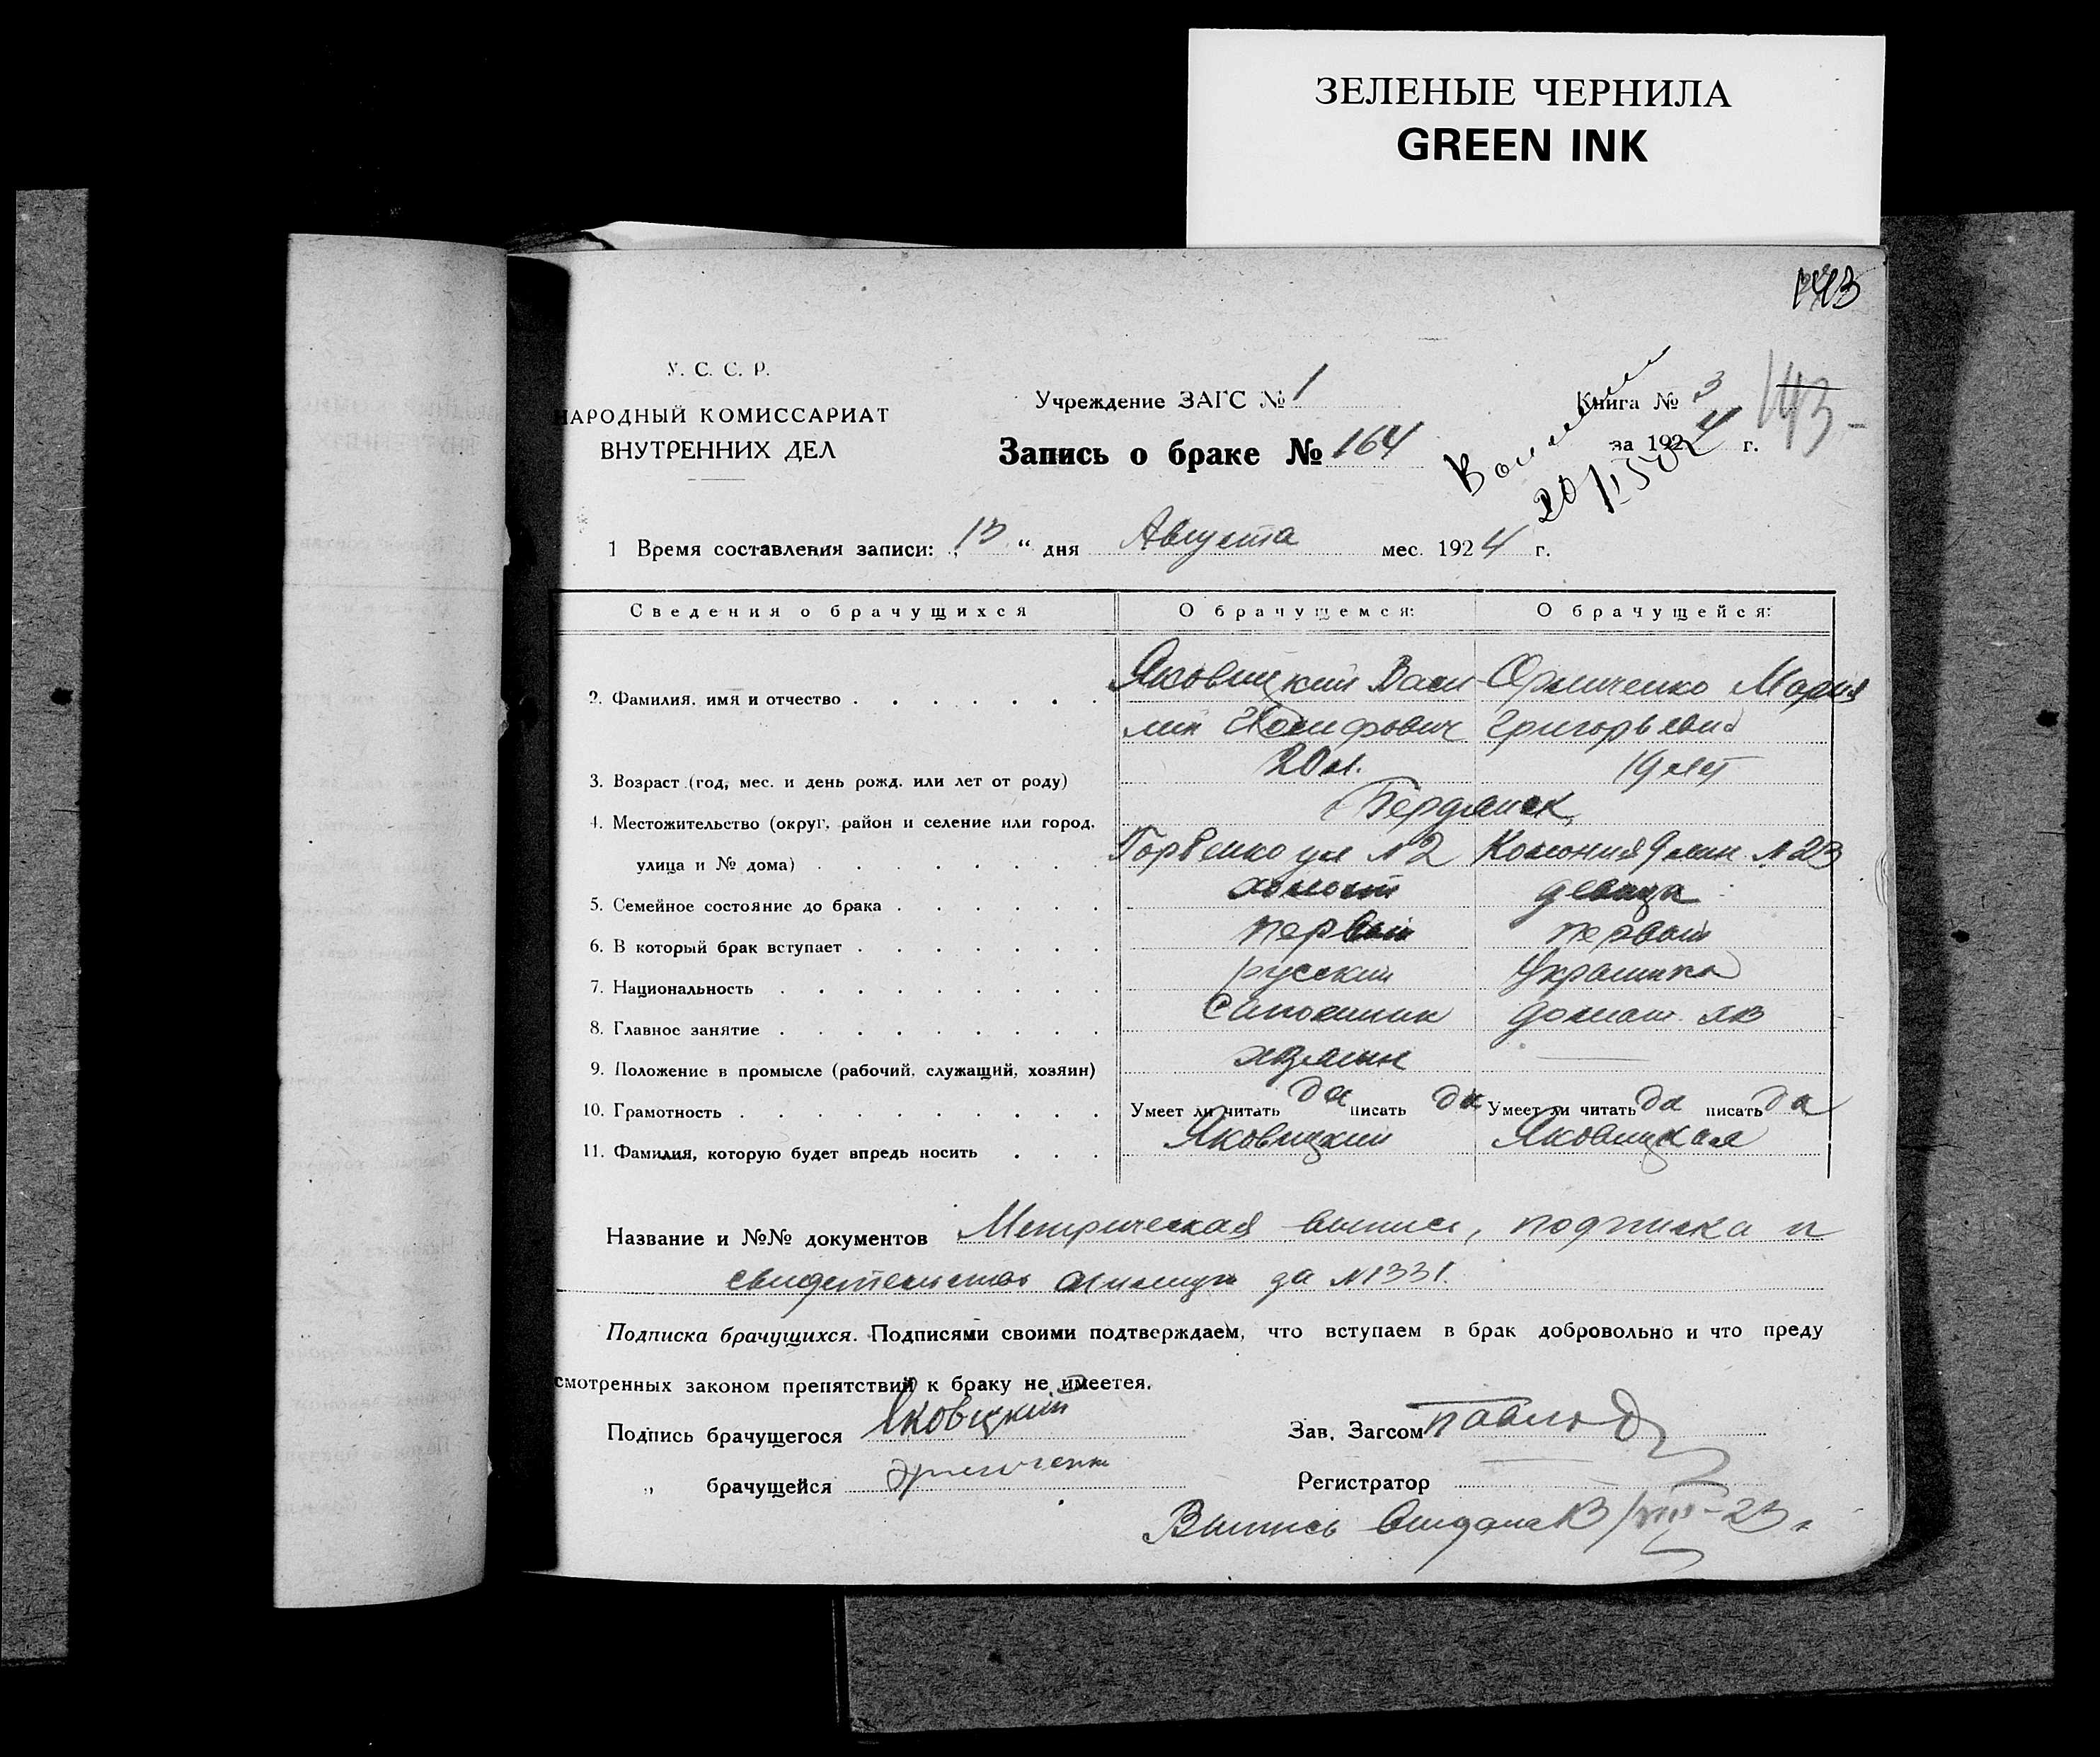 ЗЕЛЕНЫЕ ЧЕРНИЛА
GREEN INK
143
У. С. С. Р.
НАРОДНЫЙ КОМИССАРИАТ
ВНУТРЕННИХ ДЕЛ
Учреждение ЗАГС № 1
Запись о браке № 164
Книга № 3
за 1924 г.
143
1 Время составления записи: „13“ дня Августа мес. 1924 г.
Сведения о брачущихся О брачущемся: О брачущейся:
2. Фамилия, имя и отчество Яковицкий Васи Ормиченко Мария
лий Иосифович Григорьевна
3. Возраст (год, мес. и день рожд. или лет от роду) 20 л. 19 лет
4. Местожительство (округ, район и селение или город, Бердянск,
улица и № дома) Горбенко ул N 2 Колония 9 лин. N 23
5. Семейное состояние до брака холост девица
6. В который брак вступает первый первый
7. Национальность русский Украинка
8. Главное занятие Сапожник домаш. хоз
9. Положение в промысле (рабочий, служащий, хозяин) хозяин
10. Грамотность Умеет ли читать да писать да Умеет ли читать да писать да
11. Фамилия, которую будет впредь носить Яковицкий Яковицкая
Название и №№ документов Метрическая выпись, подписка и
свидетельство за N 1331.
Подписка брачущихся. Подписями своими подтверждаем, что вступаем в брак добровольно и что преду
смотренных законом препятствий к браку не имеется.
Подпись брачущегося Яковицкий
Зав. Загсом
„ брачущейся
Регистратор
Выпись выдана 13/VIII-23